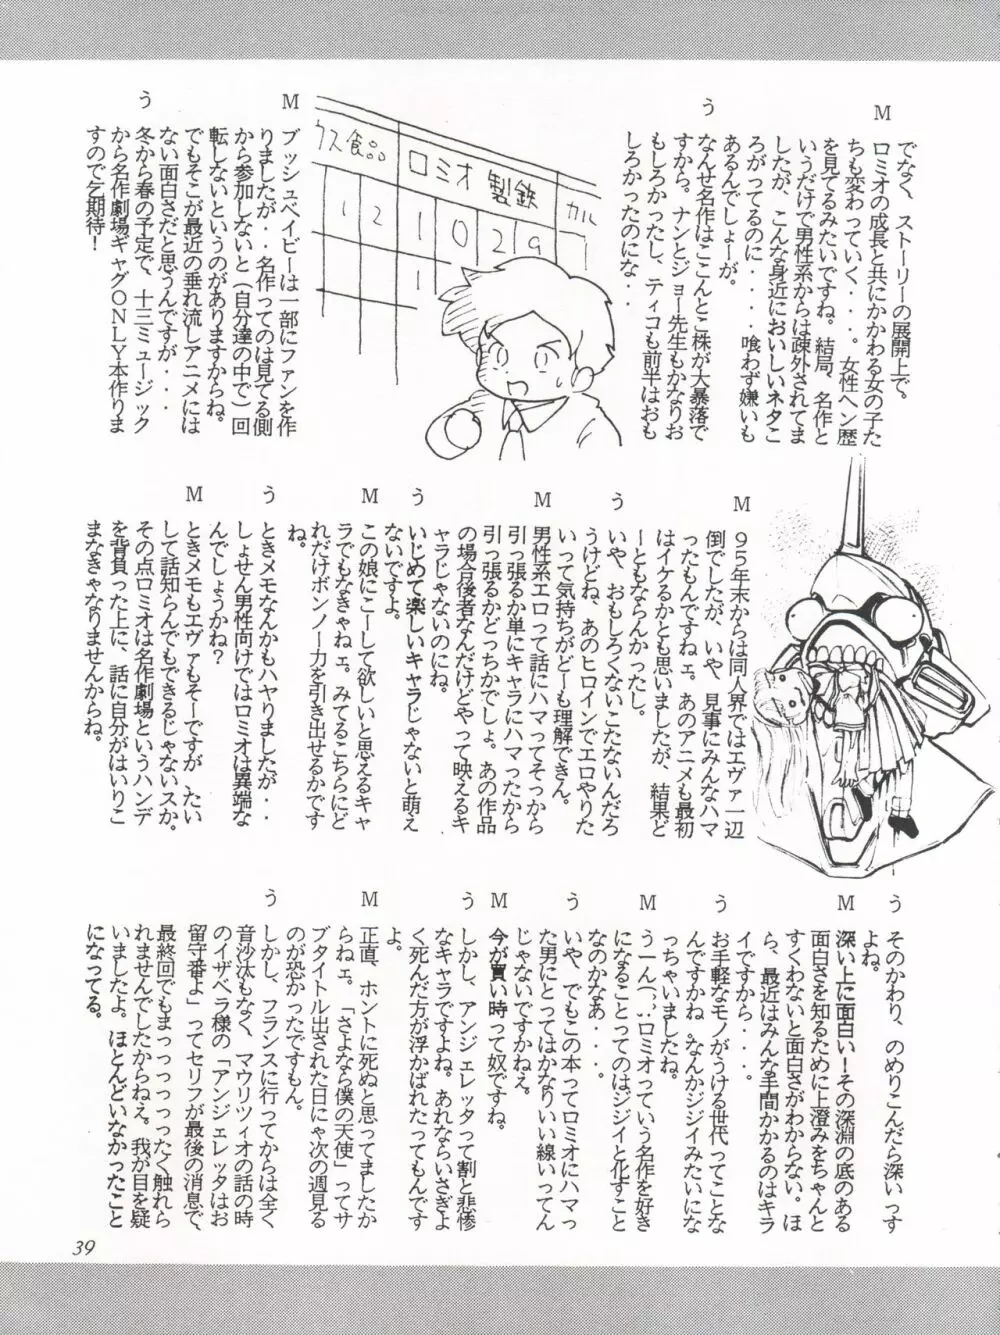 M
でなく、ストーリーの展開上で。
ロミオの成長と共にかかわる女の子た
ちも変わっていく‥‥。女性ヘン歴
を見てるみたいですね。結局、名作と
いうだけで男性系からは疎外されてま
したが、こんな身近においしいネタこ
ろがってるのに‥‥喰わず嫌いも
あるんでしょーが。
う
なんせ名作はここんとこ株が大暴落で
すから。ナンとジョー先生もかなりお
もしろかったし、ティコも前半はおも
しろかったのにな‥‥
ウス食品
ロミオ 製鉄
カル
1 2 1 0 2 9
1
M
ブッシュベイビーは一部にファンを作
りましたが‥‥名作ってのは見てる側
から参加しないと(自分達の中で)回
転しないというのがありますからね。
でもそこが最近の垂れ流しアニメには
ない面白さだと思うんですが‥‥
う
冬から春の予定で、十三ミュージック
から名作劇場ギャグONLY本作りま
すので乞期待!
M
95年末からは同人界ではエヴァ一辺
倒でしたが、いや、見事にみんなハマ
ったもんですねェ。あのアニメも最初
はイケるかとも思いましたが、結果ど
ーともならんかったし。
う
いや、おもしろくないこたないんだろ
うけどね、あのヒロインでエロやりた
いって気持ちがどーも理解できん。
M
男性系エロって話にハマってそっから
引っ張るか単にキャラにハマったから
引っ張るかどっちかでしょ。あの作品
の場合後者なんだけどやって映えるキ
ャラじゃないのにね。
う
いじめて楽しいキャラじゃないと萌え
ないですよ。
M
この娘にこーして欲しいと思えるキャ
ラでもなきゃねェ。みてるこちらにど
れだけボンノー力を引き出せるかです
ね。
う
ときメモなんかもハヤりましたが‥‥
しょせん男性向けではロミオは異端な
んでしょうかね?
M
ときメモもエヴァもそーですが、たい
して話知らんでもできるじゃないスか。
その点ロミオは名作劇場というハンデ
を背負った上に、話に自分がはいりこ
まなきゃなりませんからね。
う
そのかわり、のめりこんだら深いっす
よね。
M
深い上に面白い!その深淵の底のある
面白さを知るために上澄みをちゃんと
すくわないと面白さがわからない。ほ
ら、最近はみんな手間かかるのはキラ
イですから‥‥。
う
お手軽なモノがうける世代ってことな
んですかね。なんかジジイみたいにな
っちゃいましたね。
M
うーん(‥‥)ロミオっていう名作を好き
になることってのはジジイと化すこと
なのかなあ‥‥。
う
いや、でもこの本ってロミオにハマっ
た男にとってはかなりいい線いってん
じゃないですかねえ。
M
今が買い時って奴ですね。
う
しかし、アンジェレッタって割と悲惨
なキャラですよね。あれならいさぎよ
く死んだ方が浮かばれたってもんです
よ。
M
正直、ホントに死ぬと思ってましたか
らねェ。「さよなら僕の天使」ってサ
ブタイトル出された日にゃ次の週見る
のが恐かったですもん。
う
しかし、フランスに行ってからは全く
音沙汰もなく、マウリツィオの話の時
のイザベラ様の「アンジェレッタはお
留守番よ」ってセリフが最後の消息で、
最終回でもまっっっっったく触れら
れませんでしたからねえ。我が目を疑
いましたよ。ほとんどいなかったこと
になってる。
39